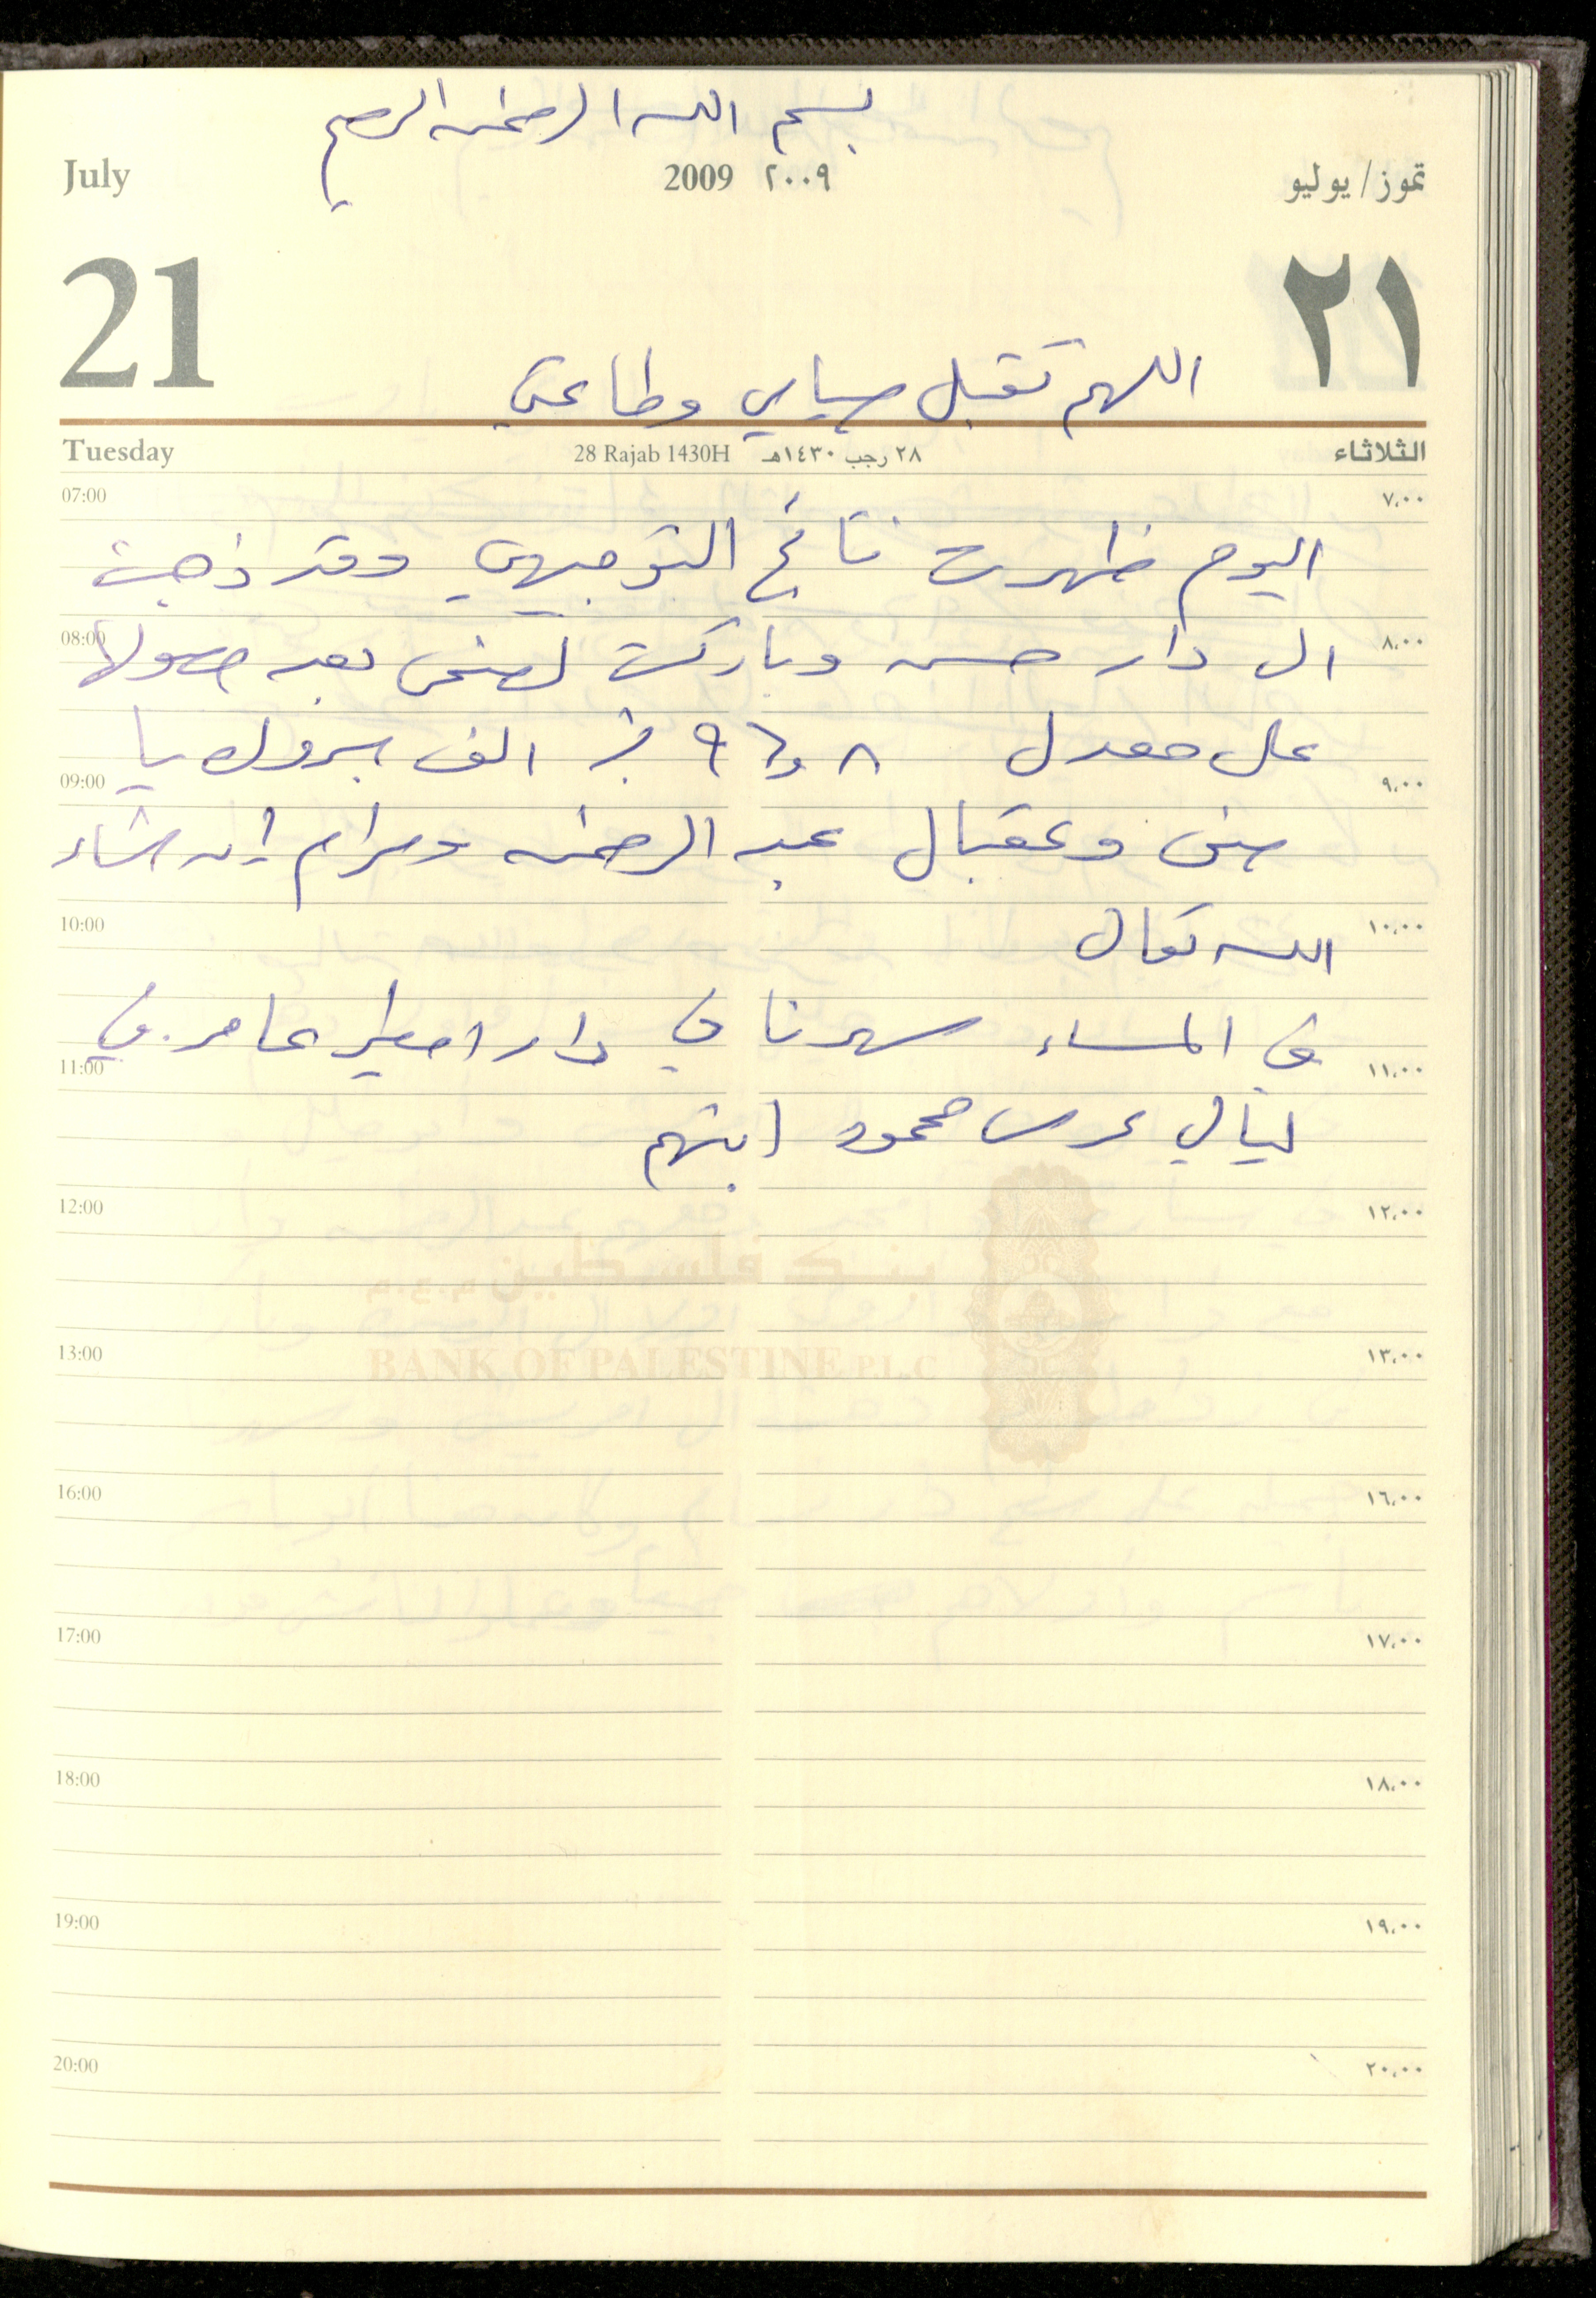 بسم الله الرحمن الرحيم
July 2009 ٢٠٠٩ تموز/يوليو
21 ٢١
اللهم تقبل صيامي وطاعتي
Tuesday 28 Rajab 1430H ٢٨ رجب ١٤٣٠هـ الثلاثاء
07:00 ٧،٠٠
اليوم ظهرت نتائج التوجيهي وقد ذهبت
08:00 ٨،٠٠
الى دار حسن وباركت لضحى بعد حصولها
على معدل ٨ و٩٦ فـ الف مبروك يا
09:00 ٩،٠٠
ضحى وعقبال عبد الرحمن ومرام ان شاء
10:00 ١٠،٠٠
الله تعالى
في المساء سهرنا في دار عامر في
11:00 ١١،٠٠
ليالي عرس محمود ابنهم
12:00 ١٢،٠٠
بنك فلسطين م.ع.م
13:00 ١٣،٠٠
BANK OF PALESTINE P.L.C
16:00 ١٦،٠٠
17:00 ١٧،٠٠
18:00 ١٨،٠٠
19:00 ١٩،٠٠
20:00 ٢٠،٠٠